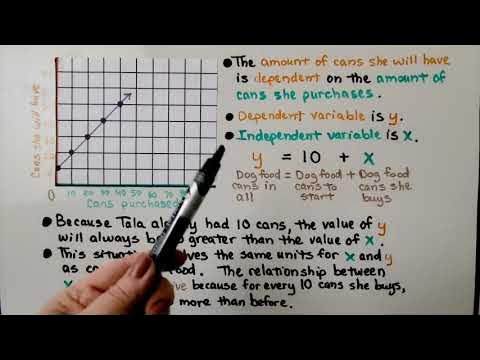 Cans she will have
0 10 20 30 40 50 60 70 80
Cans purchased
●The amount of cans she will have
is dependent on the amount of
cans she purchases.
●Dependent variable is y.
●Independent variable is x.
y = 10 + x
Dog food = Dog food + Dog food
cans in cans to cans she
all start buys
●Because Tala had 10 cans, the value of y
will always greater than the value of x.
●This the same units for x and y
as food. The relationship between
x because for every 10 cans she buys,
more than before.